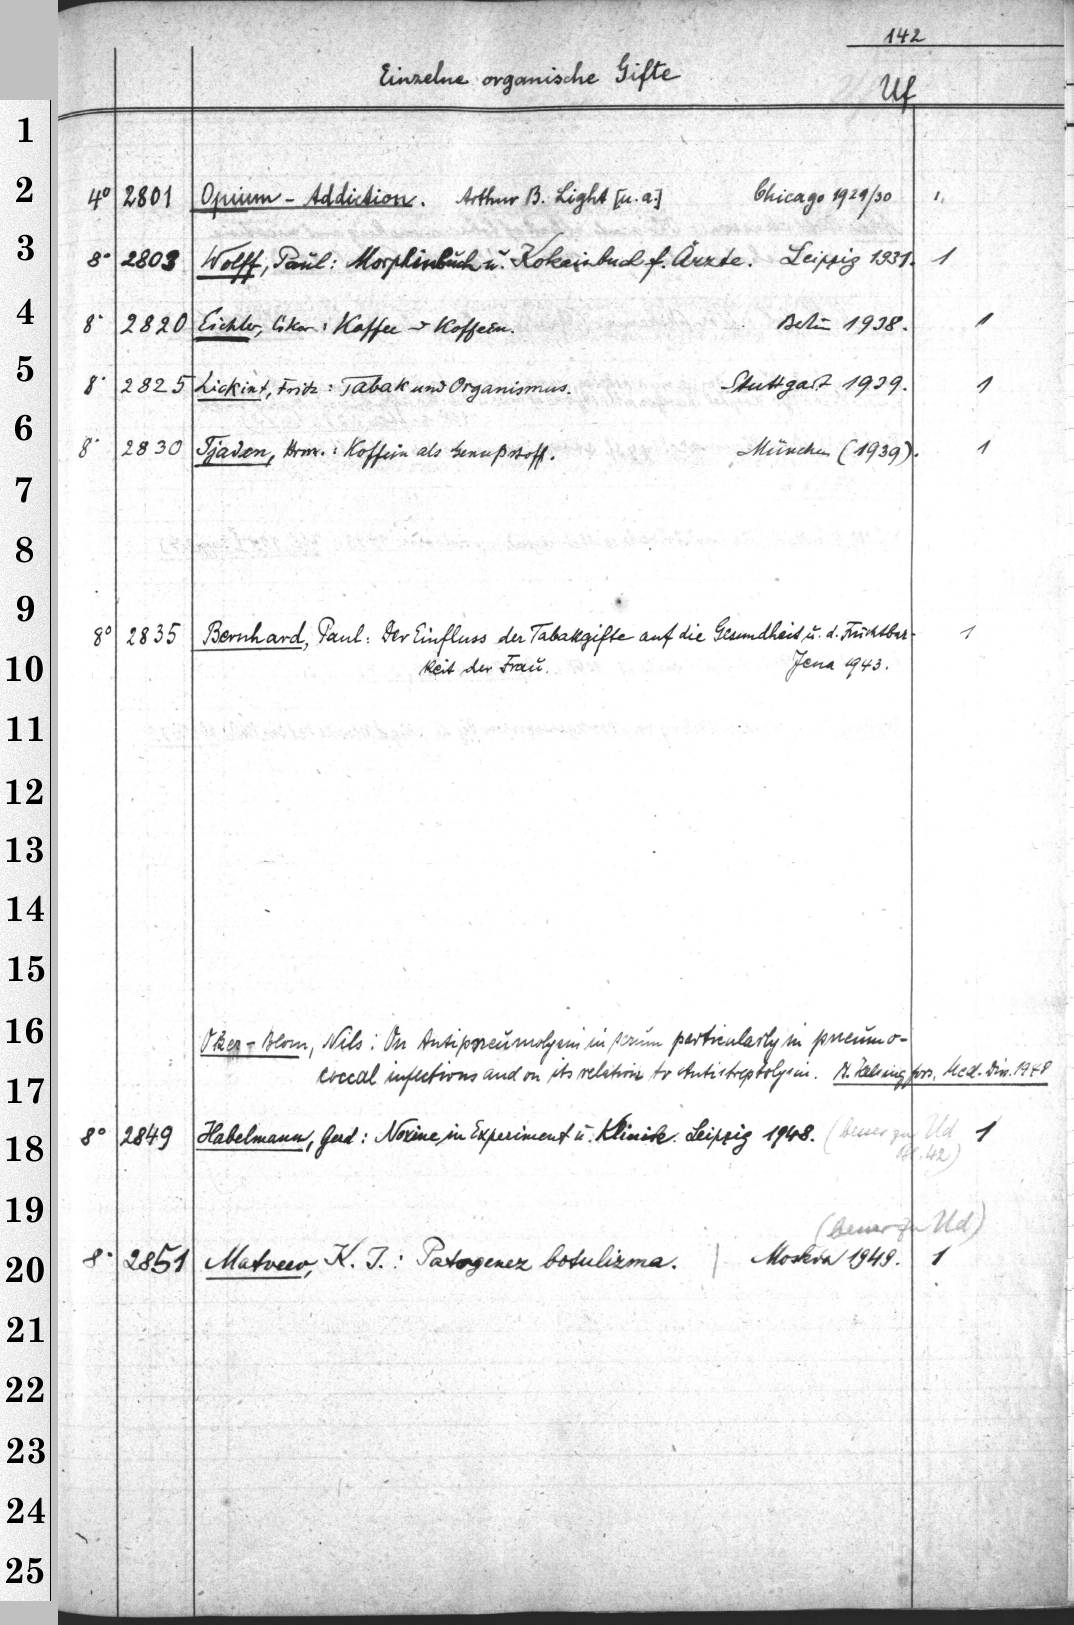 142
Einzelne organische Gifte
Uf
1
2 4° 2801 Opium - Addiction. Arthur B. Light [u. a.] Chicago 1929/30 1
3 8° 2803 Wolff, Paul: Morphinbuch u. Kokainbuch f. Ärzte. Leipzig 1931. 1
4 8° 2820 Eichler, Oskar: Kaffee u Koffein. Berlin 1938. 1
5 8° 2825 Lickint, Fritz: Tabak und Organismus. Stuttgart 1939. 1
6 8° 2830 Tjaden, Hrm.: Koffein als Genußstoff. München (1939). 1
7
8
9 8° 2835 Bernhard, Paul: Der Einfluss der Tabakgifte auf die Gesundheit u. d. Fruchtbar- 1
10 keit der Frau. Jena 1943.
11
12
13
14
15
16 Oker-Blom, Nils: On Antipneumolysin in serum particularly in pneumo-
17 coccal infections and on its relation to Antistreptolysin. N. Helsingfors. Med. Diss. 1948
18 8° 2849 Habelmann, Gerd: Noxine in Experiment u. Klinik. Leipzig 1948. (besser zu Ud 1
Bl. 42)
19 (besser zu Ud)
20 8° 2851 Matveev, K. I.: Patogenez botulizma. | Moskva 1949. 1
21
22
23
24
25